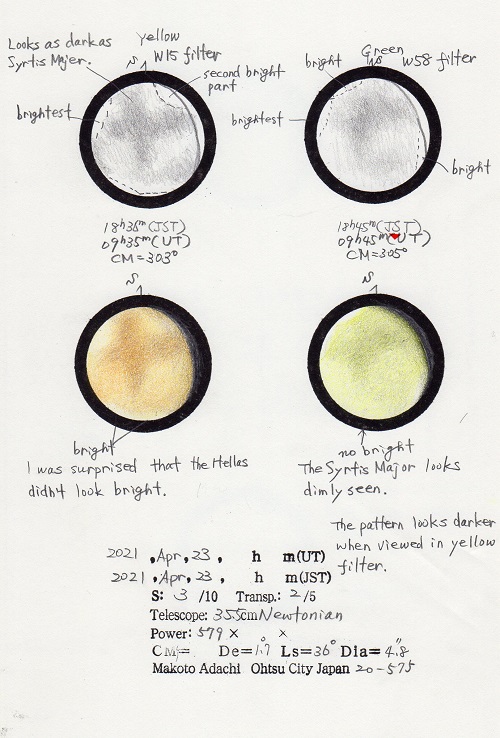 yellow
W15 filter
Looks as dark as
Syrtis Majer.
N
second bright
part
brightest
18h35m(JST)
09h35m(UT)
CM=303°
Green
N
W58 filter
bright
brightest
bright
18h45m(JST)
09h45m(UT)
CM=305°
N
bright
I was surprised that the Hellas
didn't look bright.
N
no bright
The Syrtis Major looks
dimly seen.
The pattern looks darker
when viewed in yellow
filter.
2021 , Apr, 23 , h m(UT)
2021 , Apr, 23 , h m(JST)
S: 3 /10 Transp.: 2 /5
Telescope: 355cm Newtonian
Power: 579 × ×
CM= De=1.7° Ls=36° Dia= 4.8"
Makoto Adachi Ohtsu City Japan 20-575